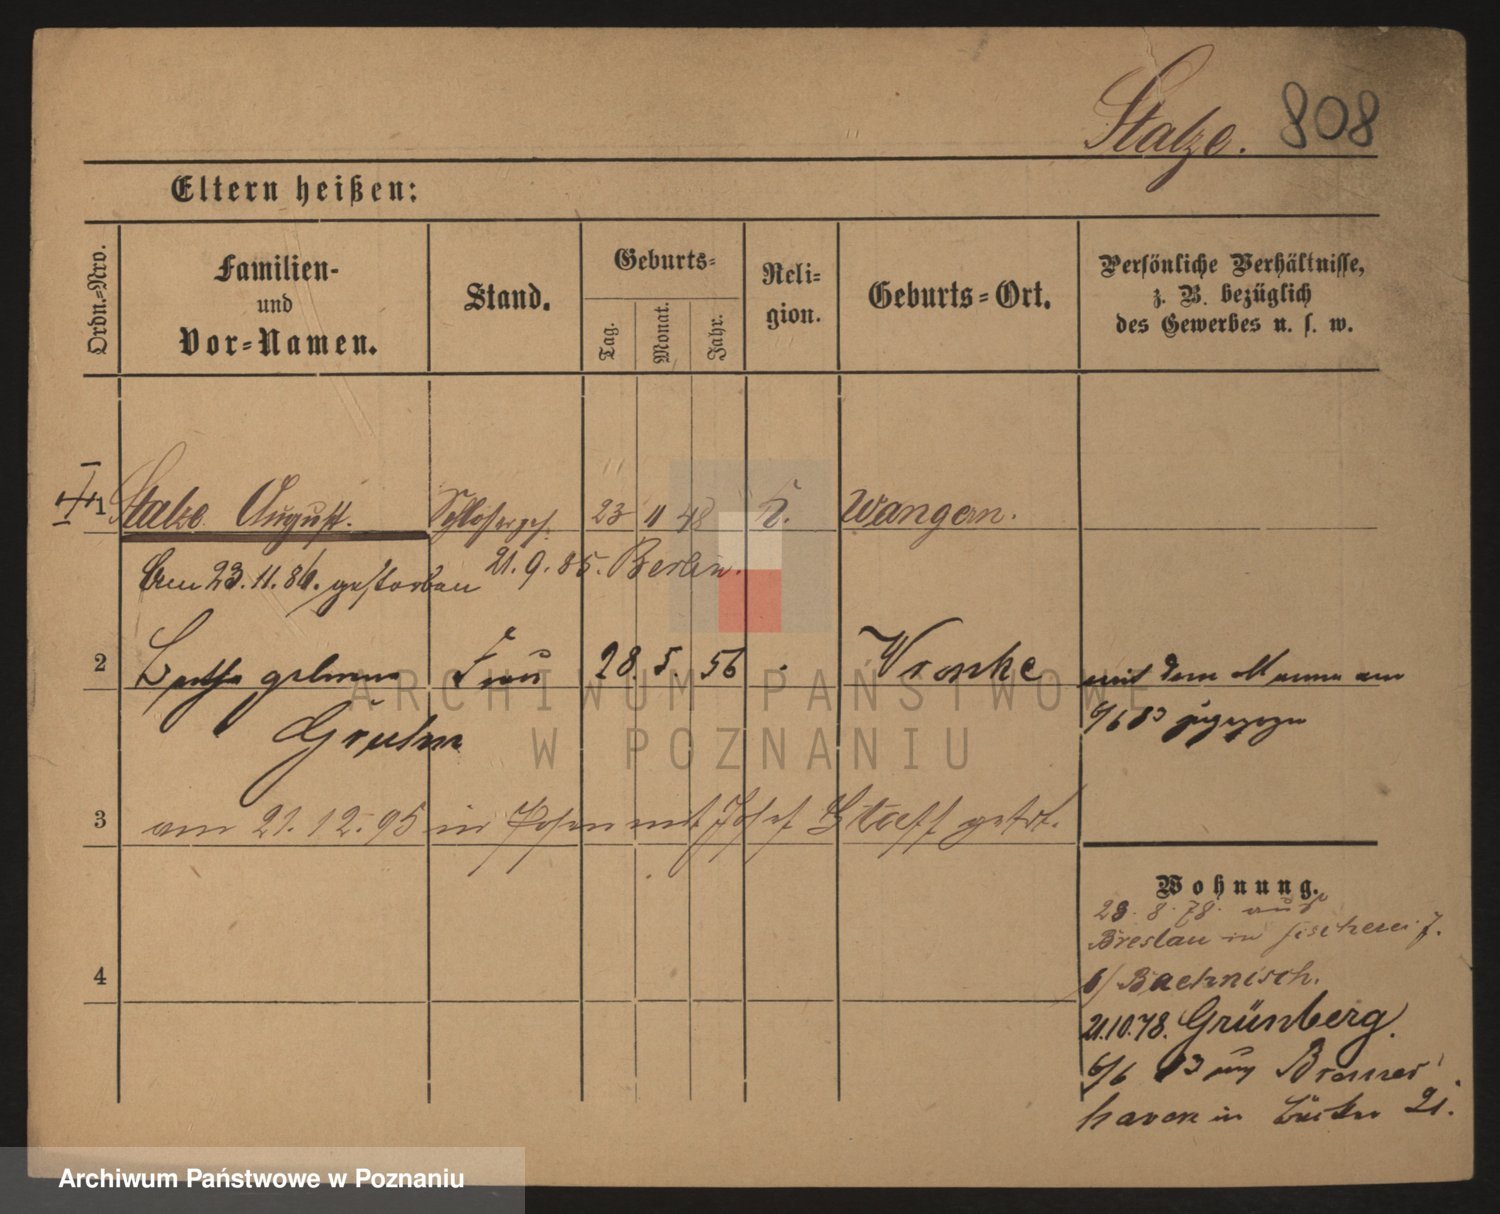 Stalze. 808
Eltern heißen:
Ordn.-Nro.
Familien-
und
Vor-Namen.
Stand.
Geburts-
Tag.
Monat.
Jahr.
Reli-
gion.
Geburts-Ort.
Persönliche Verhältnisse,
z. B. bezüglich
des Gewerbes u. s. w.
1 Stalze August. Schlosserges. 23 11 48 K. Wangern.
Am 23.11.86. gestorben 21.9.85. Berlin.
2 geborene Frau 28. 5. 56 Wronke mit dem Manne am
6/6 83 zugezogen
3 am 21.12.95 in Posen mit Josef getrt.
Wohnung.
28. 8. 78. aus
Breslau in Fischerei 7.
b/
4
21.10.78. Grünberg.
6/6 83 aus Bremer
haven in 21.
ARCHIWUM PAŃSTWOWE
W POZNANIU
Archiwum Państwowe w Poznaniu